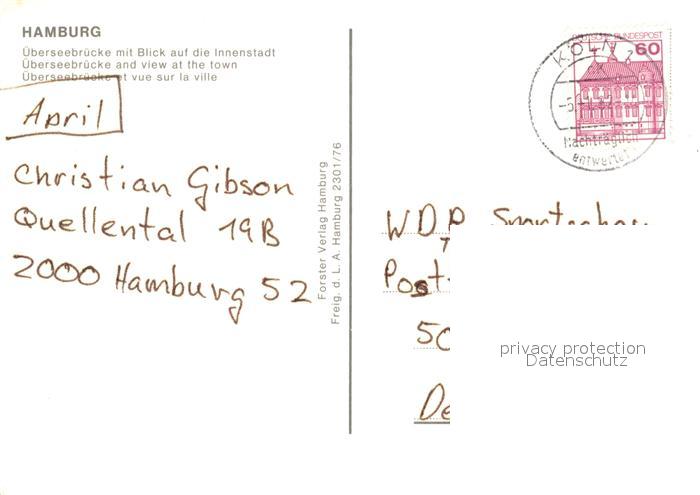 HAMBURG
Überseebrücke mit Blick auf die Innenstadt
Überseebrücke and view at the town
Überseebrücke et vue sur la ville
April
Christian Gibson
Quellental 19B
2000 Hamburg 52
Forster Verlag Hamburg
Freig. d. L. A. Hamburg 2301/76
DEUTSCHE BUNDESPOST
60
KÖLN
Nachträglich
entwertet
WDR
Post
50
De
privacy protection
Datenschutz